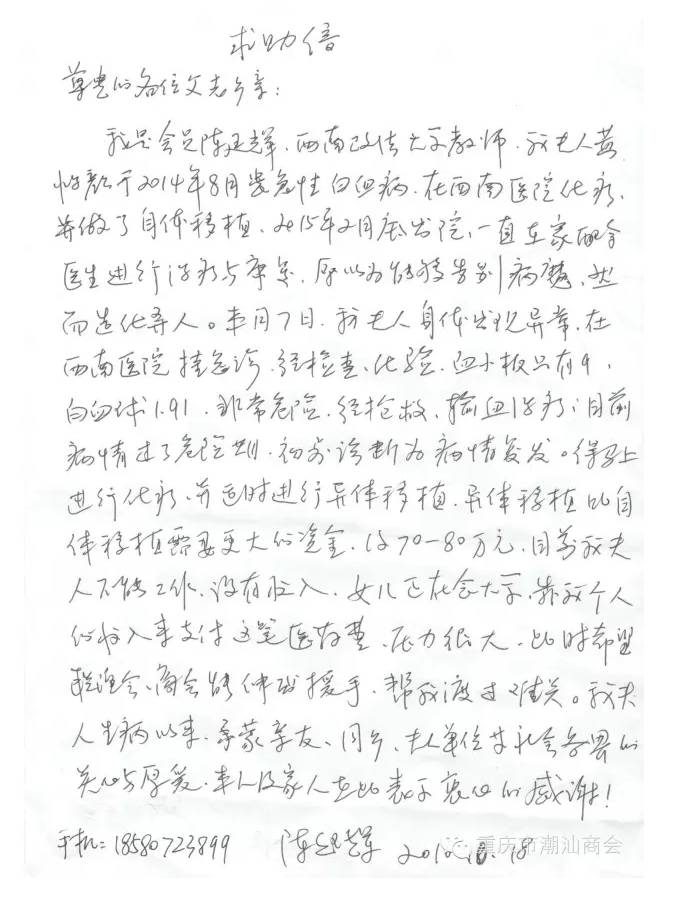 求助信
尊贵的各位父老乡亲：
我是会员陈廷辉，西南政法大学教师。我夫人黄
怡彰于2014年8月患急性白血病，在西南医院化疗，
并做了自体移植，2015年2月底出院，一直在家配合
医生进行治疗与康复，原以为能够告别病魔，然
而造化弄人。本月7日，我夫人身体出现异常，在
西南医院挂急诊，经检查、化验，血小板只有9，
白血球1.91，非常危险，经抢救、输血治疗，目前
病情过了危险期，初步诊断为病情复发。得马上
进行化疗，并适时进行异体移植，异体移植比自
体移植需要更大的资金，约70-80万元，目前我夫
人不能工作，没有收入，女儿还在念大学，靠我个人
的收入来支付这笔医药费，压力很大，此时希望
联谊会、商会能伸出援手，帮我渡过难关。我夫
人生病以来，承蒙亲友、同乡、夫人单位其社会各界的
关心与厚爱，本人及家人在此表示衷心的感谢！
手机：18580723899 陈廷辉 18
重庆市潮汕商会